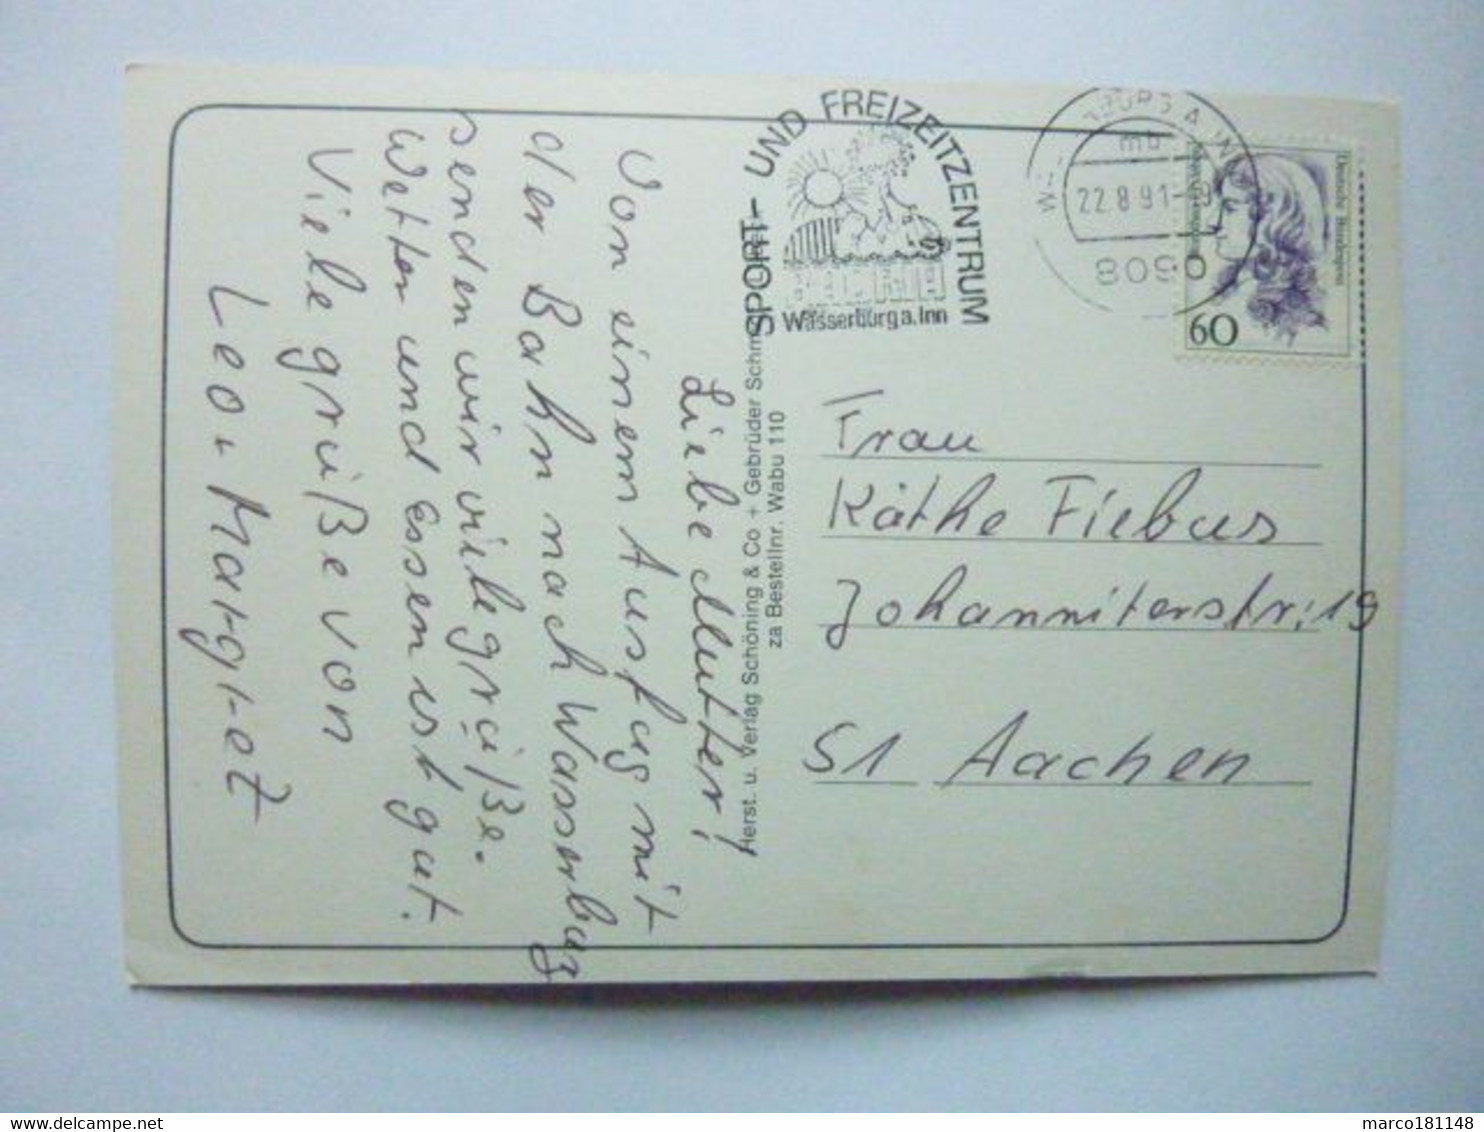 Liebe Mutter!
Von einem Ausflug mit
der Bahn nach Wasserburg
senden wir viele grüße.
Wetter und Essen ist gut.
Viele grüße von
Leo + Margret
Herst. u. Verlag Schöning & Co + Gebrüder Schm
za Bestellnr. Wabu 110
SPORT- UND FREIZEITZENTRUM
Wasserburg a. Inn
BURG A. INN
mb
22.8.91-
8090
Deutsche Bundespost
60
Frau
Käthe Fiebus
Johanniterstr. 19
51 Aachen
marco181148